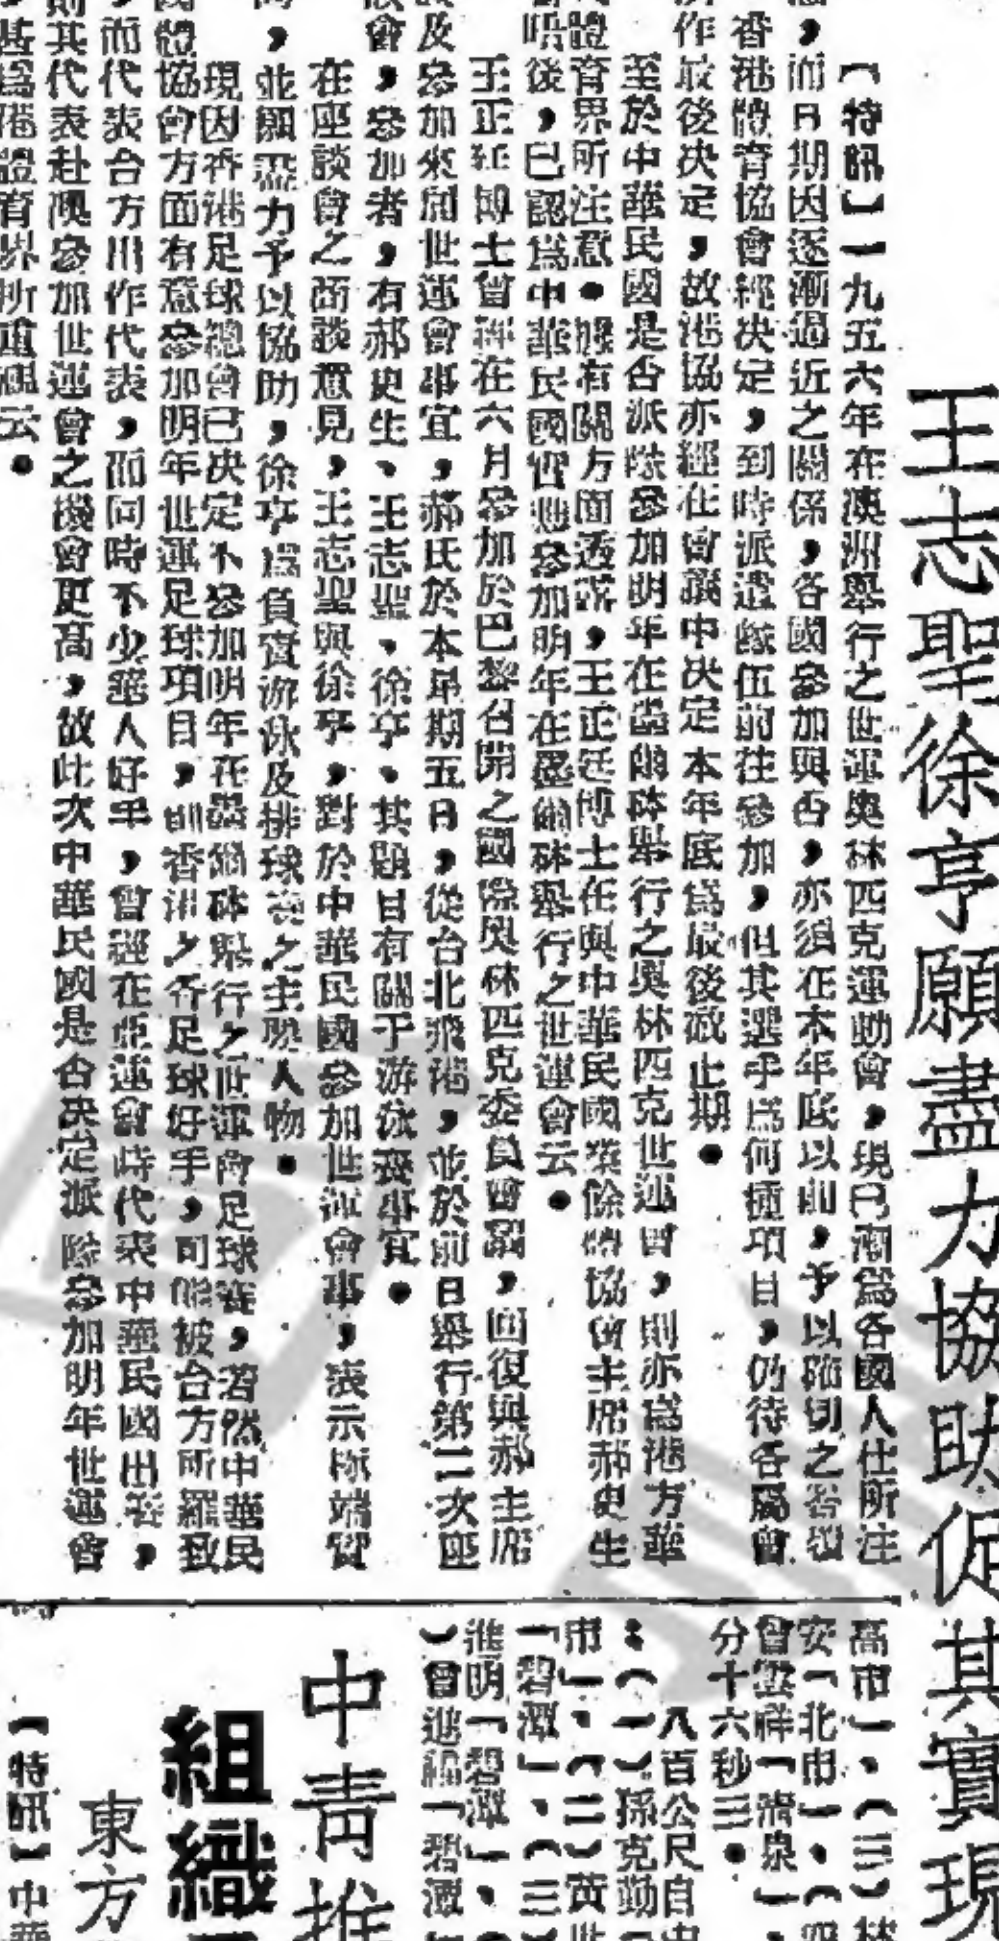 王志聖徐亨願盡力協助促其實現
【特訊】一九五六年在澳洲舉行之世運奧林匹克運動會，現已漸為各國人仕所注
，而日期因逐漸逼近之關係，各國參加與否，亦須在本年底以前，予以確切之答覆
香港體育協會經決定，到時派遣隊伍前往參加，但其選手為何種項目，仍待各屬會
作最後決定，故港協亦經在會議中決定本年底為最後截止期●
至於中華民國是否派隊參加明年在墨爾砵舉行之奧林匹克世運會，則亦為港方華
體育界所注意●據有關方面透露，王正廷博士在與中華民國業餘體協會主席郝更生
晤後，已認為中華民國管辦參加明年在墨爾砵舉行之世運會云●
王正廷博士曾經在六月參加於巴黎召開之國際奧林匹克委員會議，回復與郝主席
及參加來屆世運會事宜，郝氏於本星期五日，從台北飛港，並於前日舉行第二次座
會，參加者，有郝更生、王志聖、徐亨、其題目有關于游泳賽事宜●
在座談會之面談意見，王志聖與徐亨，對於中華民國參加世運會事，表示極端贊
，並願盡力予以協助，徐亨為負責游泳及排球賽之主腦人物●
現因香港足球總會已決定不參加明年在墨爾砵舉行之世運會足球賽，若然中華民
國體協會方面有意參加明年世運足球項目，則香港之各足球好手，可能被台方所羅致
而代表台方出作代表，而同時不少華人好手，曾經在亞運會時代表中華民國出賽，
則其代表赴澳參加世運會之機會更高，故此次中華民國是否決定派隊參加明年世運會
甚為港體育界所重視云●
高市」、（三）林
安「北市」、（四
曾雲祥「清泉」，
分十六秒三●
八百公尺自由
：（一）孫克勤「
市」、（二）黃世
「碧潭」、（三）
進明「碧潭」、（
）曾進福「碧潭
中青推
組織
東方
【特訊】中華